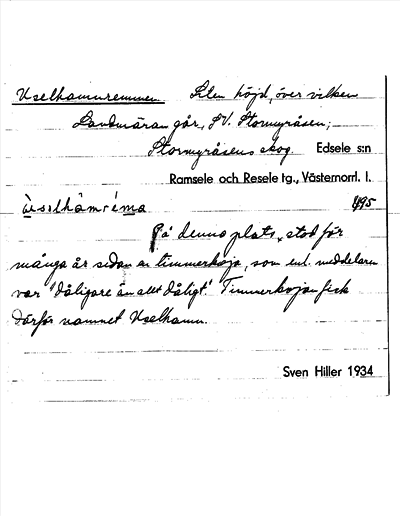 Uselhamnremmen. Liten höjd, över vilken
Landmäran går, SV. Stormyråsen;
Stormyråsens skog. Edsele s:n
Ramsele och Resele tg., Västernorrl. l.
ùselhàmréma 495
På denna plats stod för
många år sedan en timmerkoja, som enl. meddelaren
var "dåligare än allt dåligt". Timmerkojan fick
därför namnet Uselhamn.
Sven Hiller 1934